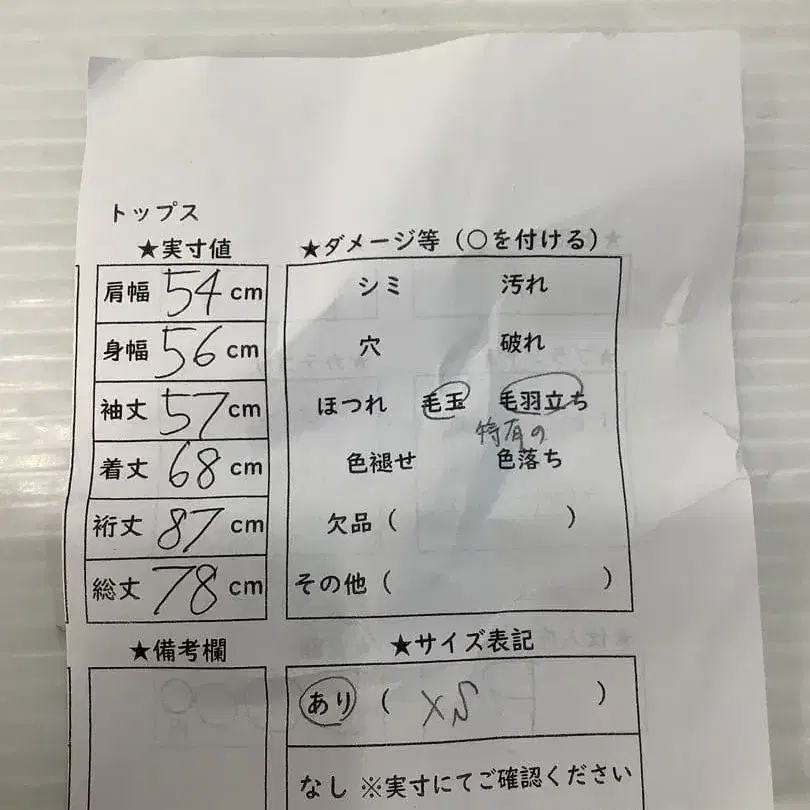 トップス
★実寸値
肩幅 54 cm
身幅 56 cm
袖丈 57 cm
着丈 68 cm
裄丈 87 cm
総丈 78 cm
★備考欄
★ダメージ等（○を付ける）
シミ 汚れ
穴 破れ
ほつれ 毛玉 毛羽立ち
特有の
色褪せ 色落ち
欠品（ ）
その他（ ）
★サイズ表記
あり（ XS ）
なし ※実寸にてご確認ください